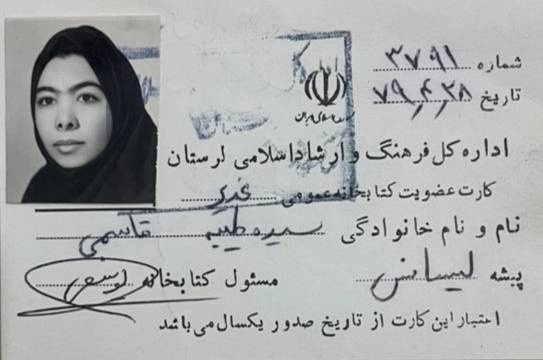 شماره ۳۷۹۱
تاریخ ۷۹٫۴٫۲۸
اداره کل فرهنگ و ارشاد اسلامی لرستان
کارت عضویت کتابخانه عمومی غدیر
نام و نام خانوادگی سیده طیبه قاسمی
پیشه لیسانس مسئول کتابخانه
اعتبار این کارت از تاریخ صدور یکسال می باشد